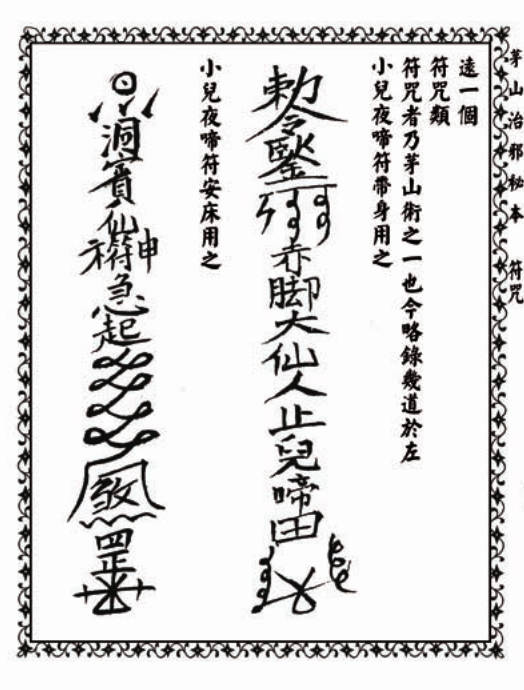 茅山治邪秘本 符咒
遠一個
符咒類
符咒者乃茅山術之一也今略錄幾道於左
小兒夜啼符帶身用之
勅令
赤脚大仙人止兒啼
小兒夜啼符安床用之
洞賓仙
急起
煞罡